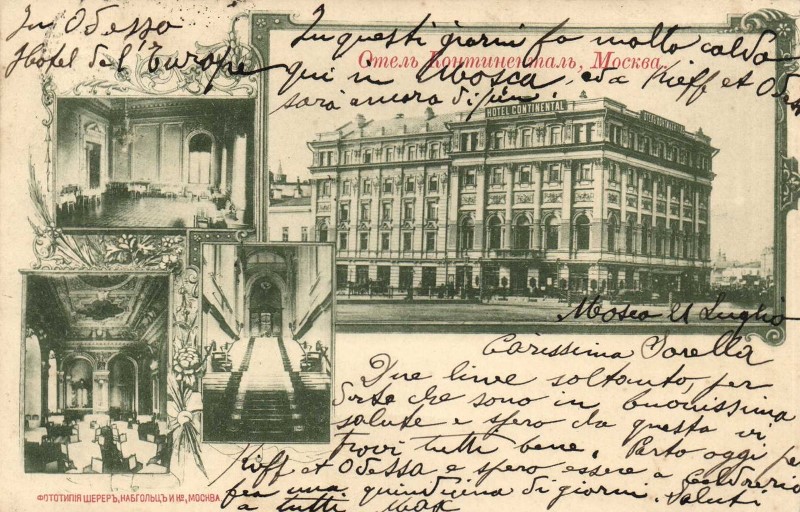 In Odessa
Hotel de l'Europe
In questi giorni fa molto caldo
qui in Mosca, ed a Kieff et Odessa
sarà ancora di più.
Отель Континенталь, Москва.
HOTEL CONTINENTAL
Mosca 21 Luglio
Carissima Sorella
Due linee soltanto, per
dirte che sono in buonissima
salute e spero che questa vi
trovi tutti bene. Parto oggi per
Kieff et Odessa e spero essere a
fra una quindicina di giorni. Saluti
a tutti Max
ФОТОТИПІЯ ШЕРЕРЪ, НАБГОЛЬЦЪ И Ко, МОСКВА